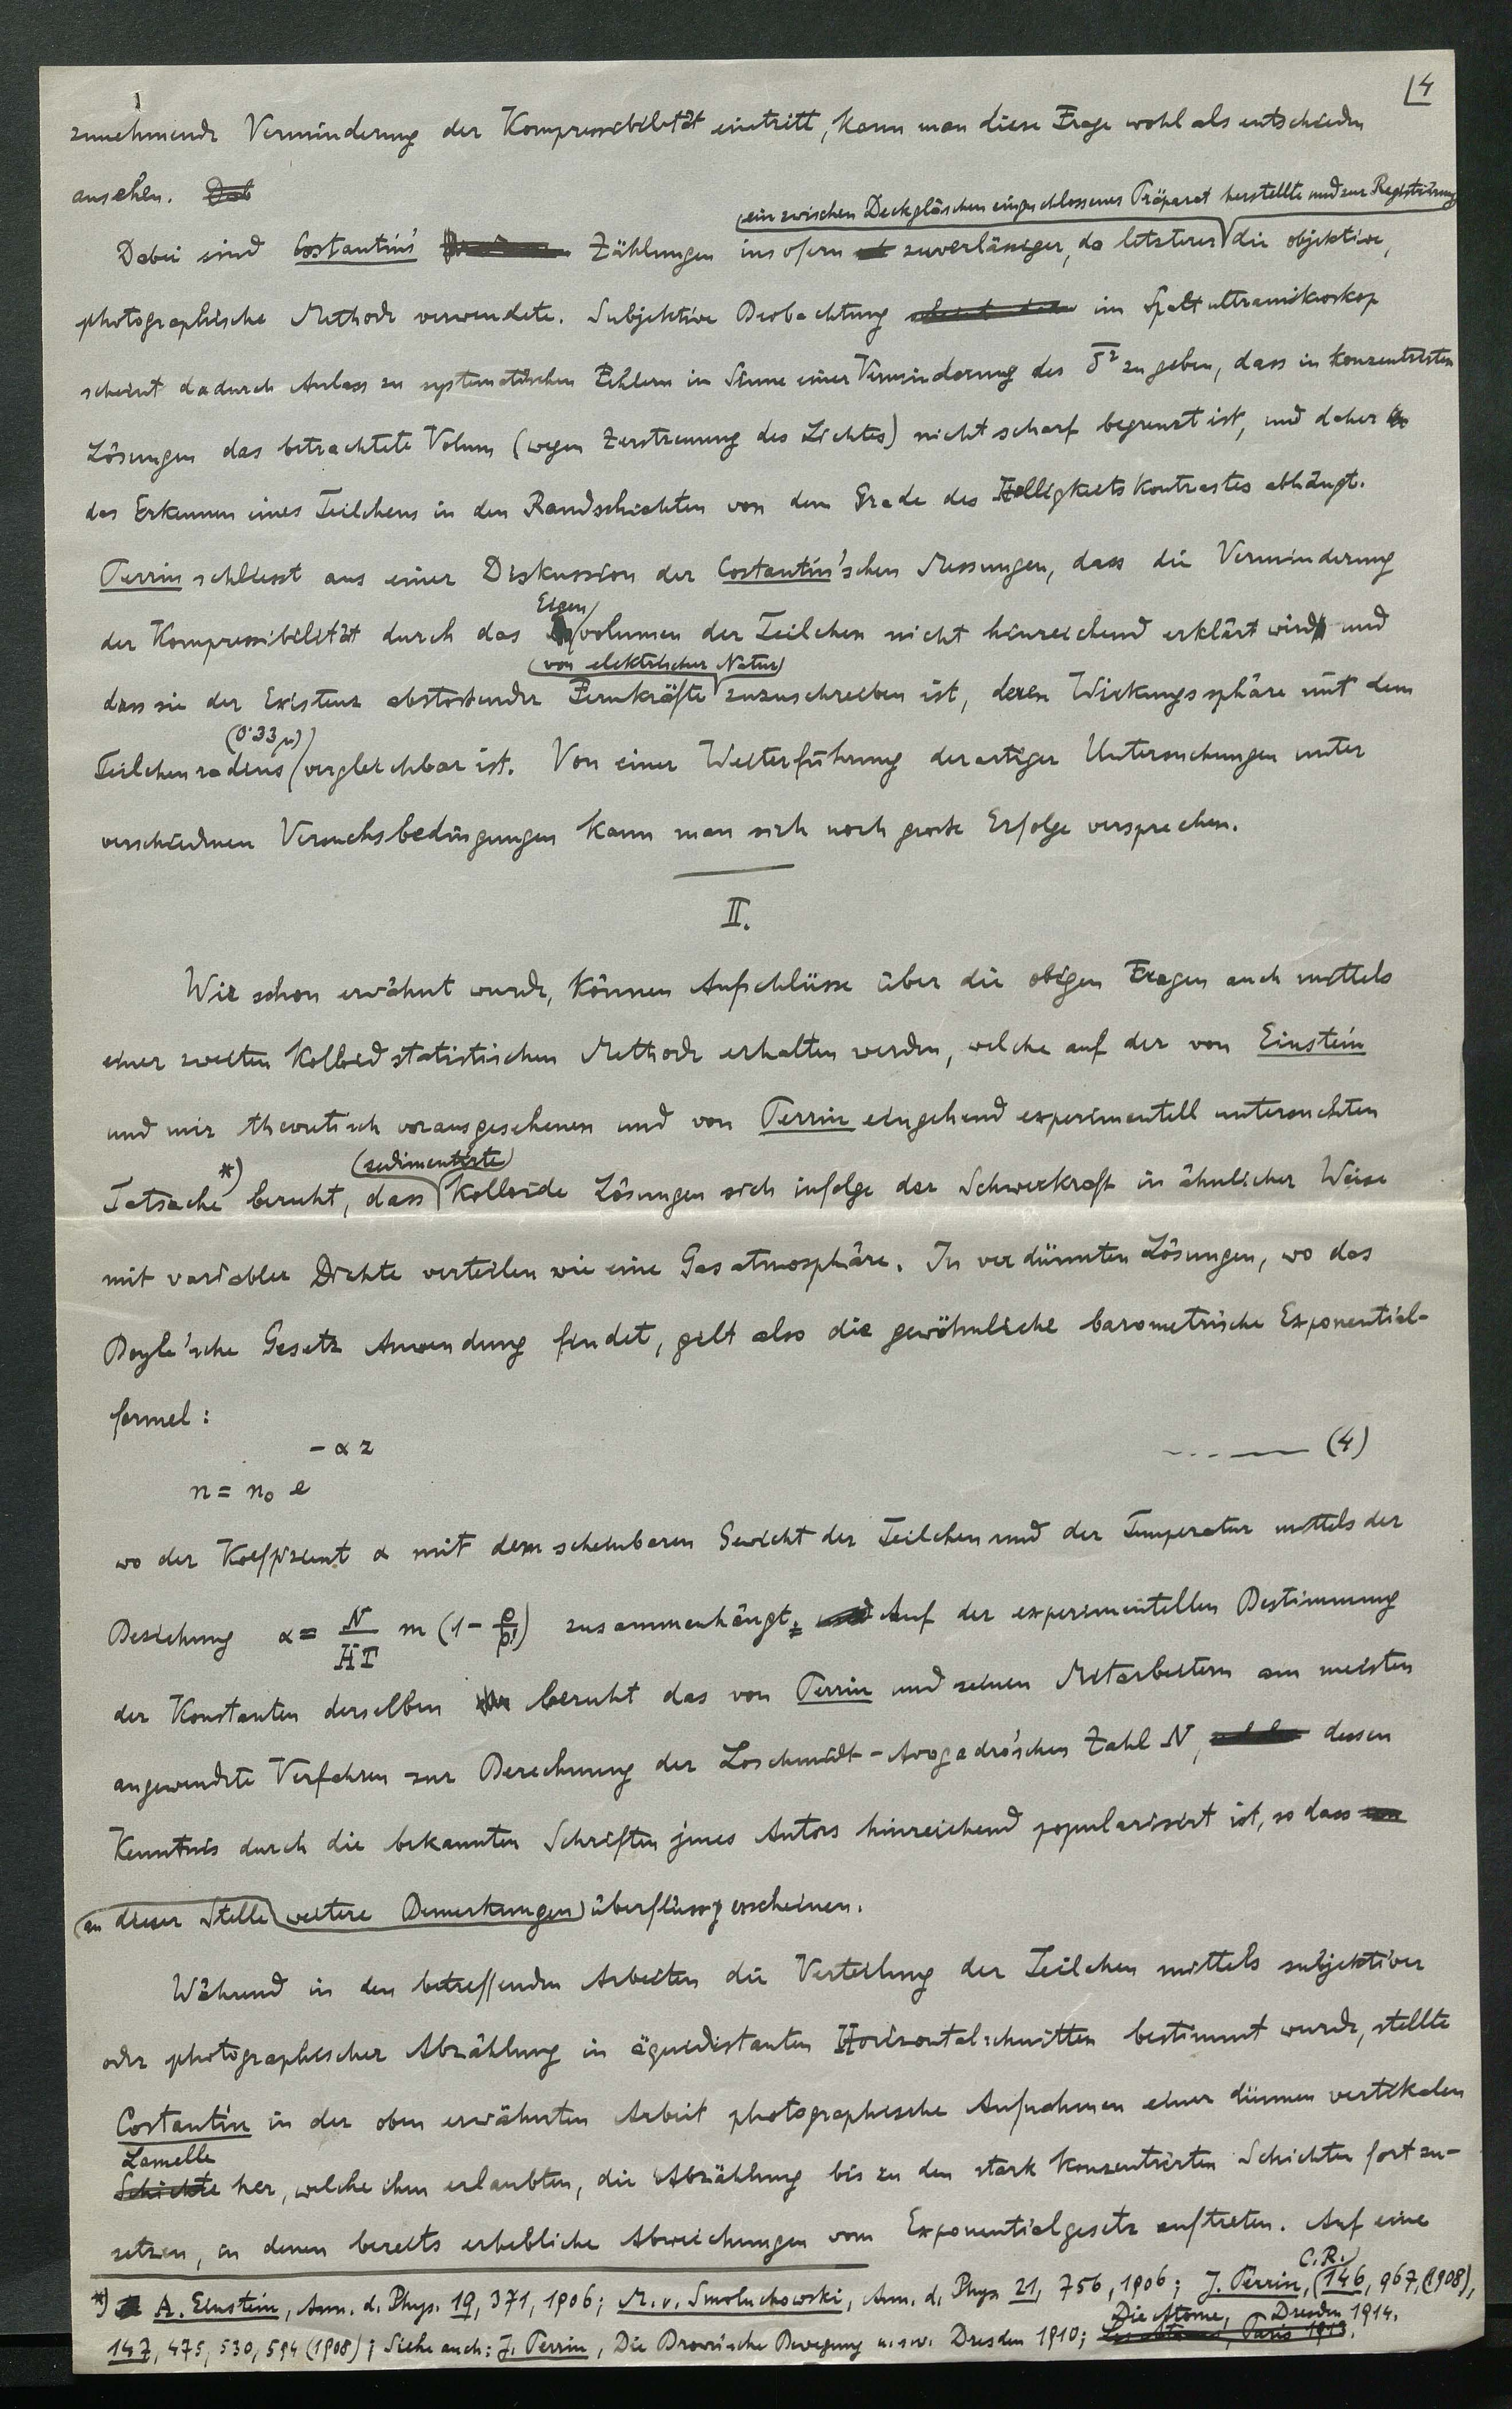 4
zunehmende Verminderung der Kompressibilität eintritt, kann man diese Frage wohl als entschieden
ansehen. Dab
(ein zwischen Deckgläschen eingeschlossenes Präparat herstellte und zur Registrirung
Dabei sind Costantin's Zählungen insofern zuverlässiger, da letzterer die objektive,
photographische Methode verwendete. Subjektive Beobachtung im Spaltultramikroskop
scheint dadurch Anlass zu systematischen Fehlern im Sinne einer Verminderung des δ² zu geben, dass in konzentrirten
Lösungen das betrachtete Volum (wegen Zerstreuung des Lichtes) nicht scharf begrenzt ist, und daher
das Erkennen eines Teilchens in den Randschichten von dem Grade des Helligkeitskontrastes abhängt.
Perrin schliesst aus einer Diskussion der Costantin'schen Messungen, dass die Verminderung
Eigen
der Kompressibilität durch das volumen der Teilchen nicht hinreichend erklärt wird und
(von elektrischer Natur)
dass sie der Existenz abstossender Fernkräfte zuzuschreiben ist, deren Wirkungssphäre mit dem
(0·33 μ)
Teilchenradius vergleichbar ist. Von einer Weiterführung derartiger Untersuchungen unter
verschiedenen Versuchsbedingungen kann man sich noch grosse Erfolge versprechen.
II.
Wie schon erwähnt wurde, können Aufschlüsse über die obigen Fragen auch mittels
einer zweiten kolloidstatistischen Methode erhalten werden, welche auf der von Einstein
und mir theoretisch vorausgesehenen und von Perrin eingehend experimentell untersuchten
(sedimentirte)
Tatsache*) beruht, dass kolloide Lösungen sich infolge der Schwerkraft in ähnlicher Weise
mit variabler Dichte verteilen wie eine Gasatmosphäre. In verdünnten Lösungen, wo das
Boyle'sche Gesetz Anwendung findet, gilt also die gewöhnliche barometrische Exponential-
formel:
n = n₀ e^(- α z) --- — (4)
wo der Koeffizient α mit dem scheinbaren Gewicht der Teilchen und der Temperatur mittels der
Beziehung α = N/HT m (1 - ρ/ρ') zusammenhängt. Auf der experimentellen Bestimmung
der Konstanten derselben beruht das von Perrin und seinen Mitarbeitern am meisten
angewendete Verfahren zur Berechnung der Loschmidt-Avogadro'schen Zahl N, dessen
Kenntnis durch die bekannten Schriften jenes Autors hinreichend popularisirt ist, so dass
(an dieser Stelle) weitere Bemerkungen überflüssig erscheinen.
Während in den betreffenden Arbeiten die Verteilung der Teilchen mittels subjektiver
oder photographischer Abzählung in äquidistanten Horizontalschnitten bestimmt wurde, stellte
Costantin in der oben erwähnten Arbeit photographische Aufnahmen einer dünnen vertikalen
Lamelle
Schichte her, welche ihm erlaubten, die Abzählung bis zu den stark konzentrirten Schichten fortzu-
setzen, in denen bereits erhebliche Abweichungen vom Exponentialgesetz auftreten. Auf eine
C.R.
*) A. Einstein, Ann. d. Phys. 19, 371, 1906; M. v. Smoluchowski, Ann. d. Phys 21, 756, 1906; J. Perrin, 146, 967, (1908),
Die Atome, Dresden 1914.
147, 475, 530, 594 (1908); Siehe auch: J. Perrin, Die Brown'sche Bewegung u.s.w. Dresden 1910; Les Atomes, Paris 1913.